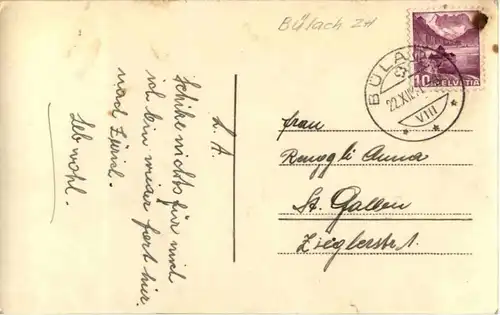 Bülach ZH
BÜLACH
22.XII.
VIII
10 HELVETIA
L. A.
Schike nichts für mich
ich bin wieder fort hier.
nach Zürich.
Leb wohl.
Frau
Renggli Anna
St. Gallen
Zieglerstr. 1.